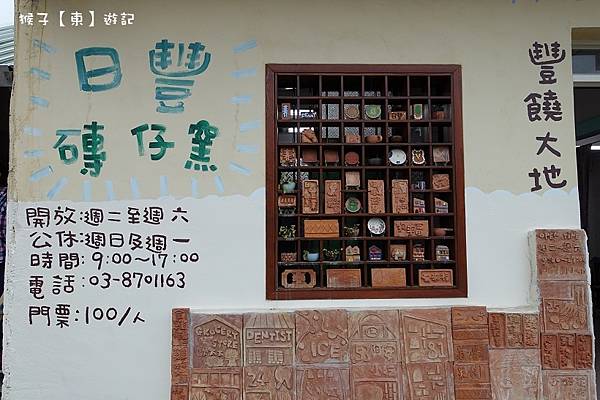 猴子【東】遊記
日豐
磚仔窯
開放:週二至週六
公休:週日及週一
時間:9:00~17:00
電話:03-8701163
門票:100/人
豐饒大地
DENTIST
ICE
24